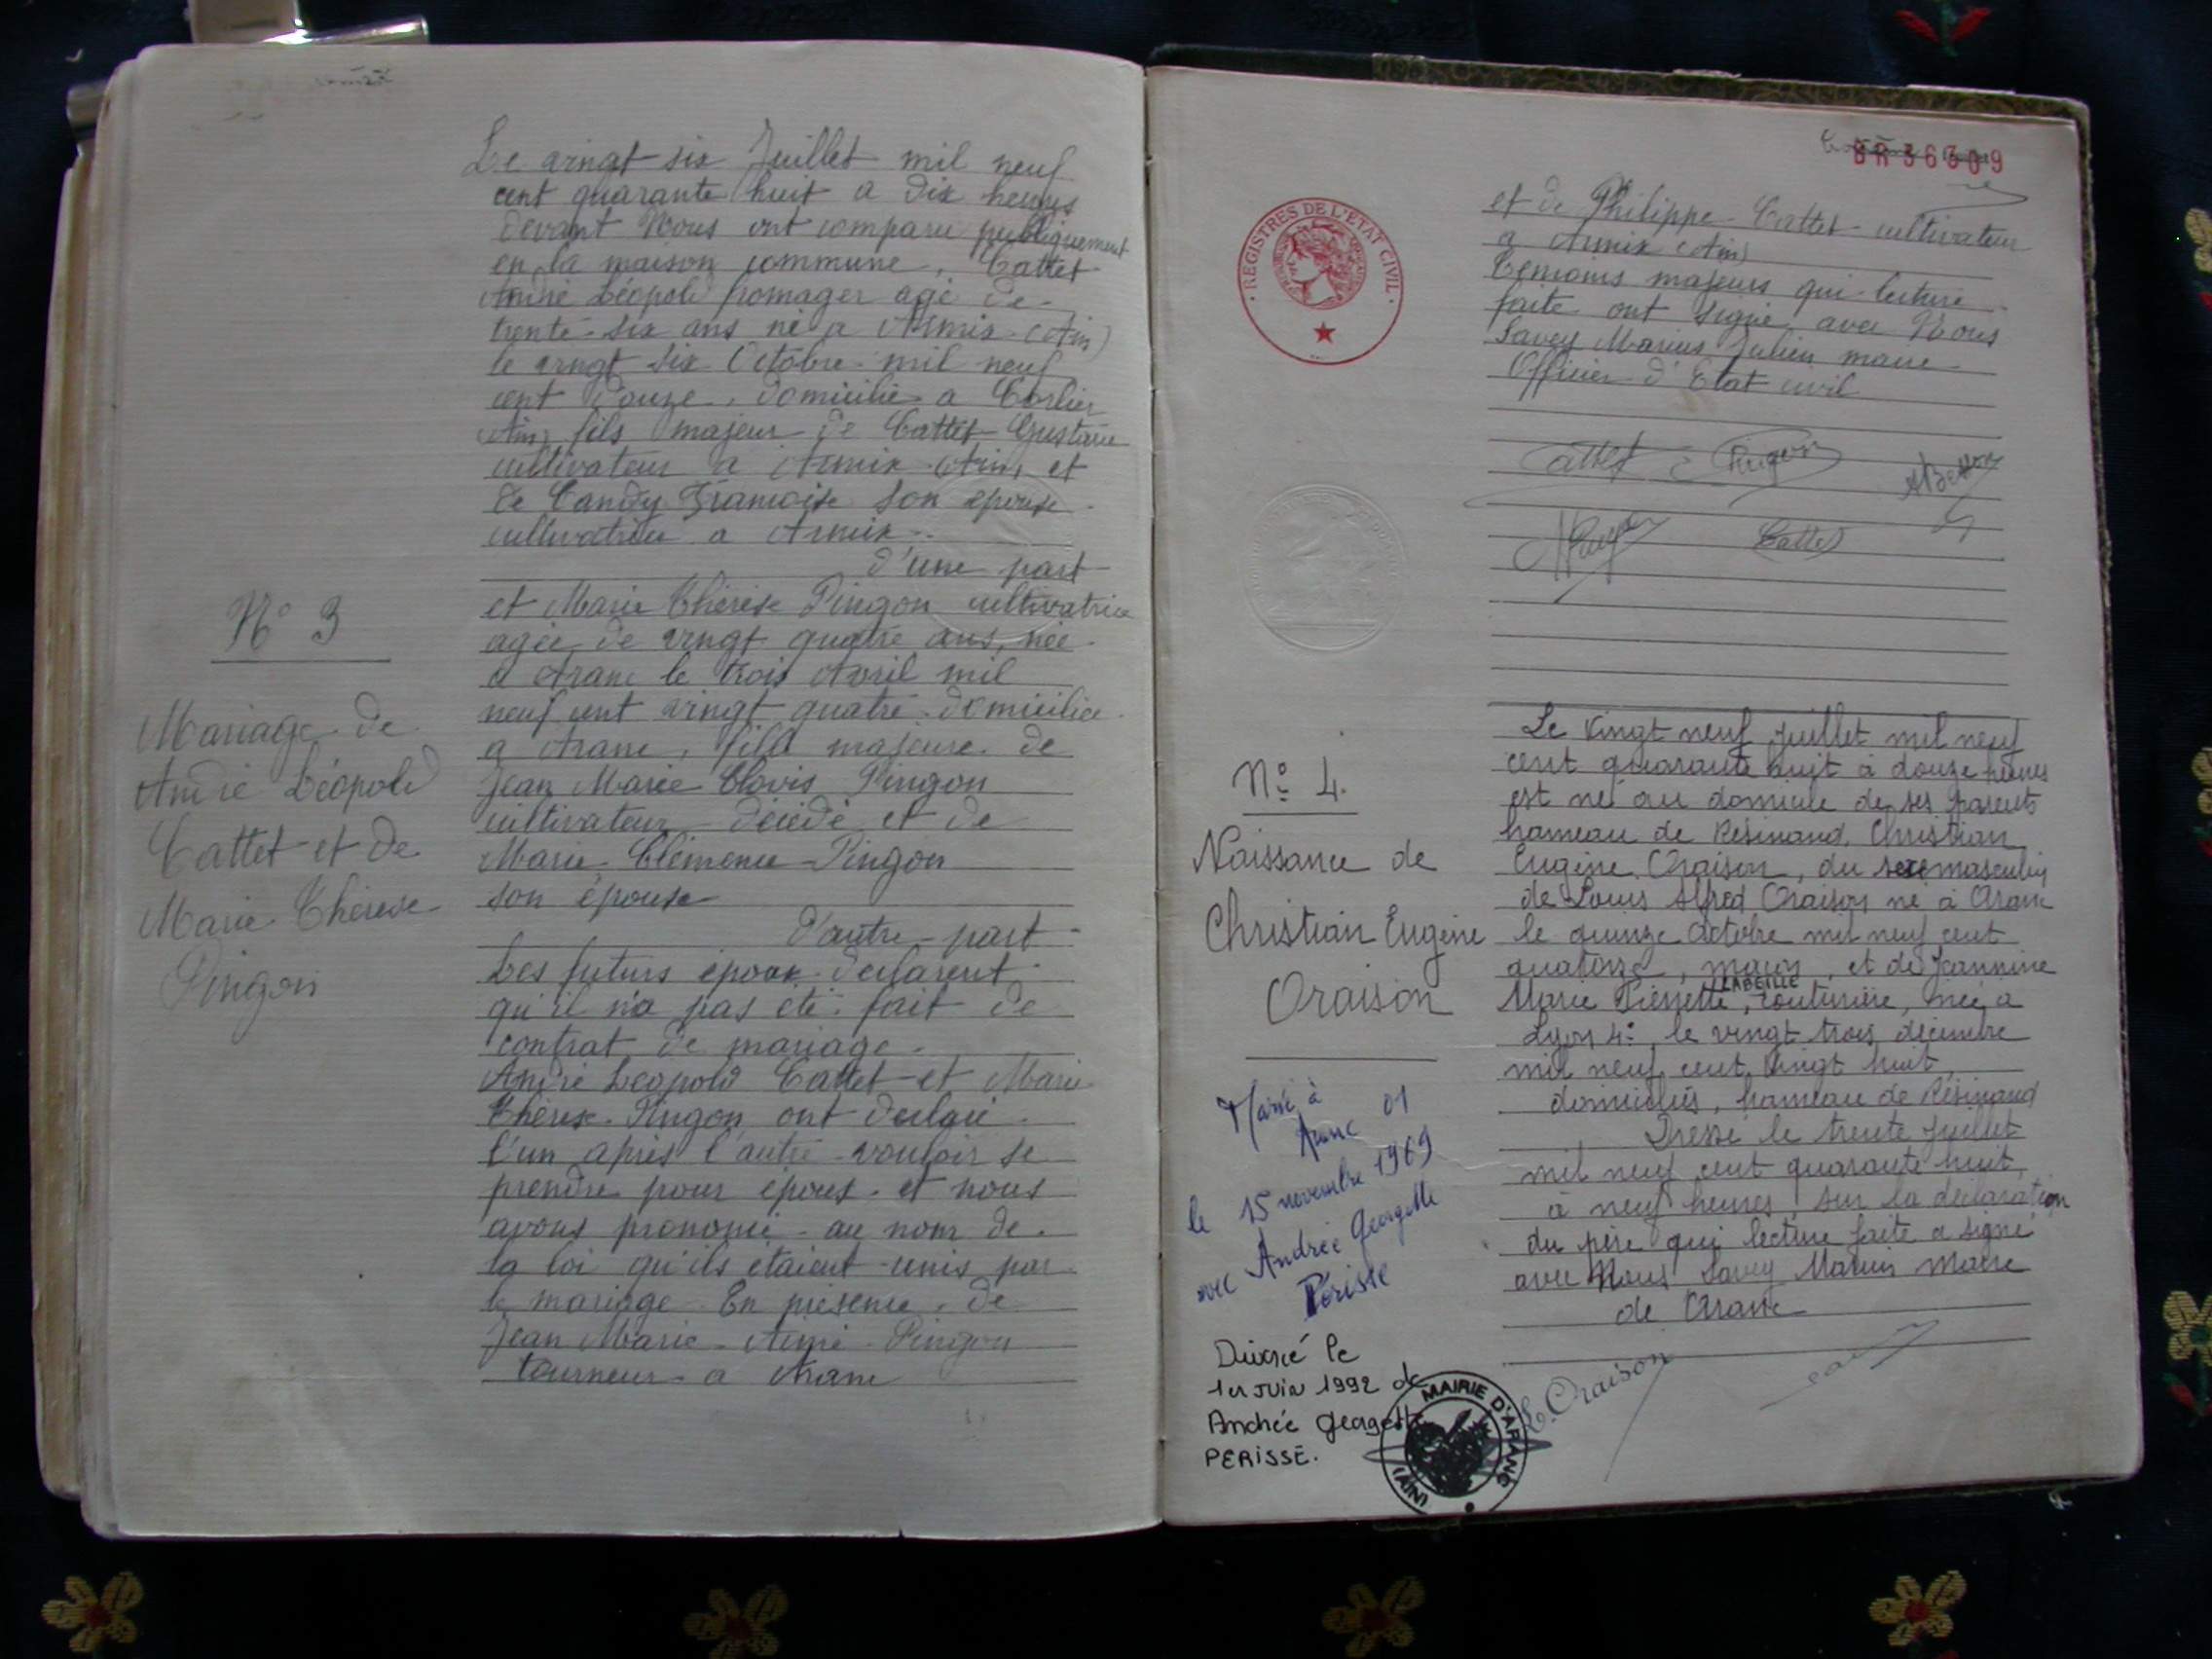 Le vingt six Juillet mil neuf
cent quarante huit a dix heures
devant Nous ont comparu publiquement
en la maison commune, Cattet
André Léopold fromager agé de
trente-six ans né a Armix (Ain)
le vingt six Octobre mil neuf
cent douze, domicilié a Corlier
(Ain) fils majeur de Cattet Gustave
cultivateur a Armix (Ain) et
de Tandy Francoise son épouse
cultivatrice a Armix.
d'une part
N° 3
Mariage de
André Léopold
Cattet et de
Marie Thérèse
Pingon
et Marie Thérèse Pingon cultivatrice
agée de vingt quatre ans, née
a Aranc le trois Avril mil
neuf cent vingt quatre domiciliée
a Aranc, fille majeure de
Jean Marie Clovis Pingon
cultivateur décédé et de
Marie Clémence Pingon
son épouse
d'autre part
Les futurs époux déclarent
qu'il n'a pas été fait de
contrat de mariage.
André Léopold Cattet et Marie
Thérèse Pingon ont déclaré
l'un après l'autre vouloir se
prendre pour époux et nous
avons prononcé au nom de
la loi qu'ils étaient unis par
le mariage En présence de
Jean Marie Aimé Pingon
tourneur a Aranc
BR 36309
REGISTRES DE L'ETAT CIVIL
et de Philippe Cattet cultivateur
a Armix (Ain)
Témoins majeurs qui lecture
faite ont signé avec Nous
Savey Marius Julien maire
Officier d'Etat civil
Cattet Pingon
Cattet
N° 4.
Naissance de
Christian Eugène
Oraison
Le vingt neuf juillet mil neuf
cent quarante huit à douze heures
est né au domicile de ses parents
hameau de Résinand, Christian
Eugène Oraison, du sexe masculin
de Louis Alfred Oraison né à Aranc
le quinze Octobre mil neuf cent
quatorze, maçon, et de Jeannine
LABEILLE
Marie Pierrette, couturière, née à
Lyon 4e, le vingt trois décembre
mil neuf cent vingt huit,
domiciliés, hameau de Résinand
Dressé le trente juillet
mil neuf cent quarante huit,
à neuf heures, sur la déclaration
du père qui lecture faite a signé
avec Nous Savey Marius Maire
de Aranc
Marié à
Aranc 01
le 15 novembre 1969
avec Andrée Georgette
Périsse
Divorcé le
1er JUIN 1992 de
Andrée Georgette
PERISSE.
MAIRIE D'ARANC
(AIN)
L. Oraison